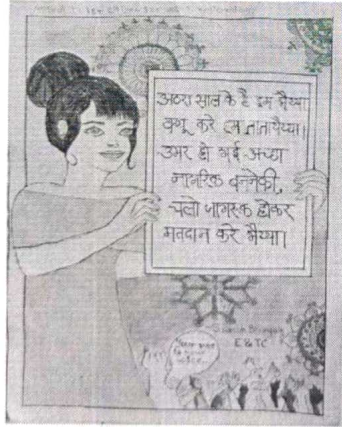 अठरा साल के है हम भैय्या
क्यू करे हम ताताथैय्या।
उमर हो गई अच्छा
नागरिक बननेकी,
चलो जागरुक होकर
मतदान करे भैय्या।
E & TC